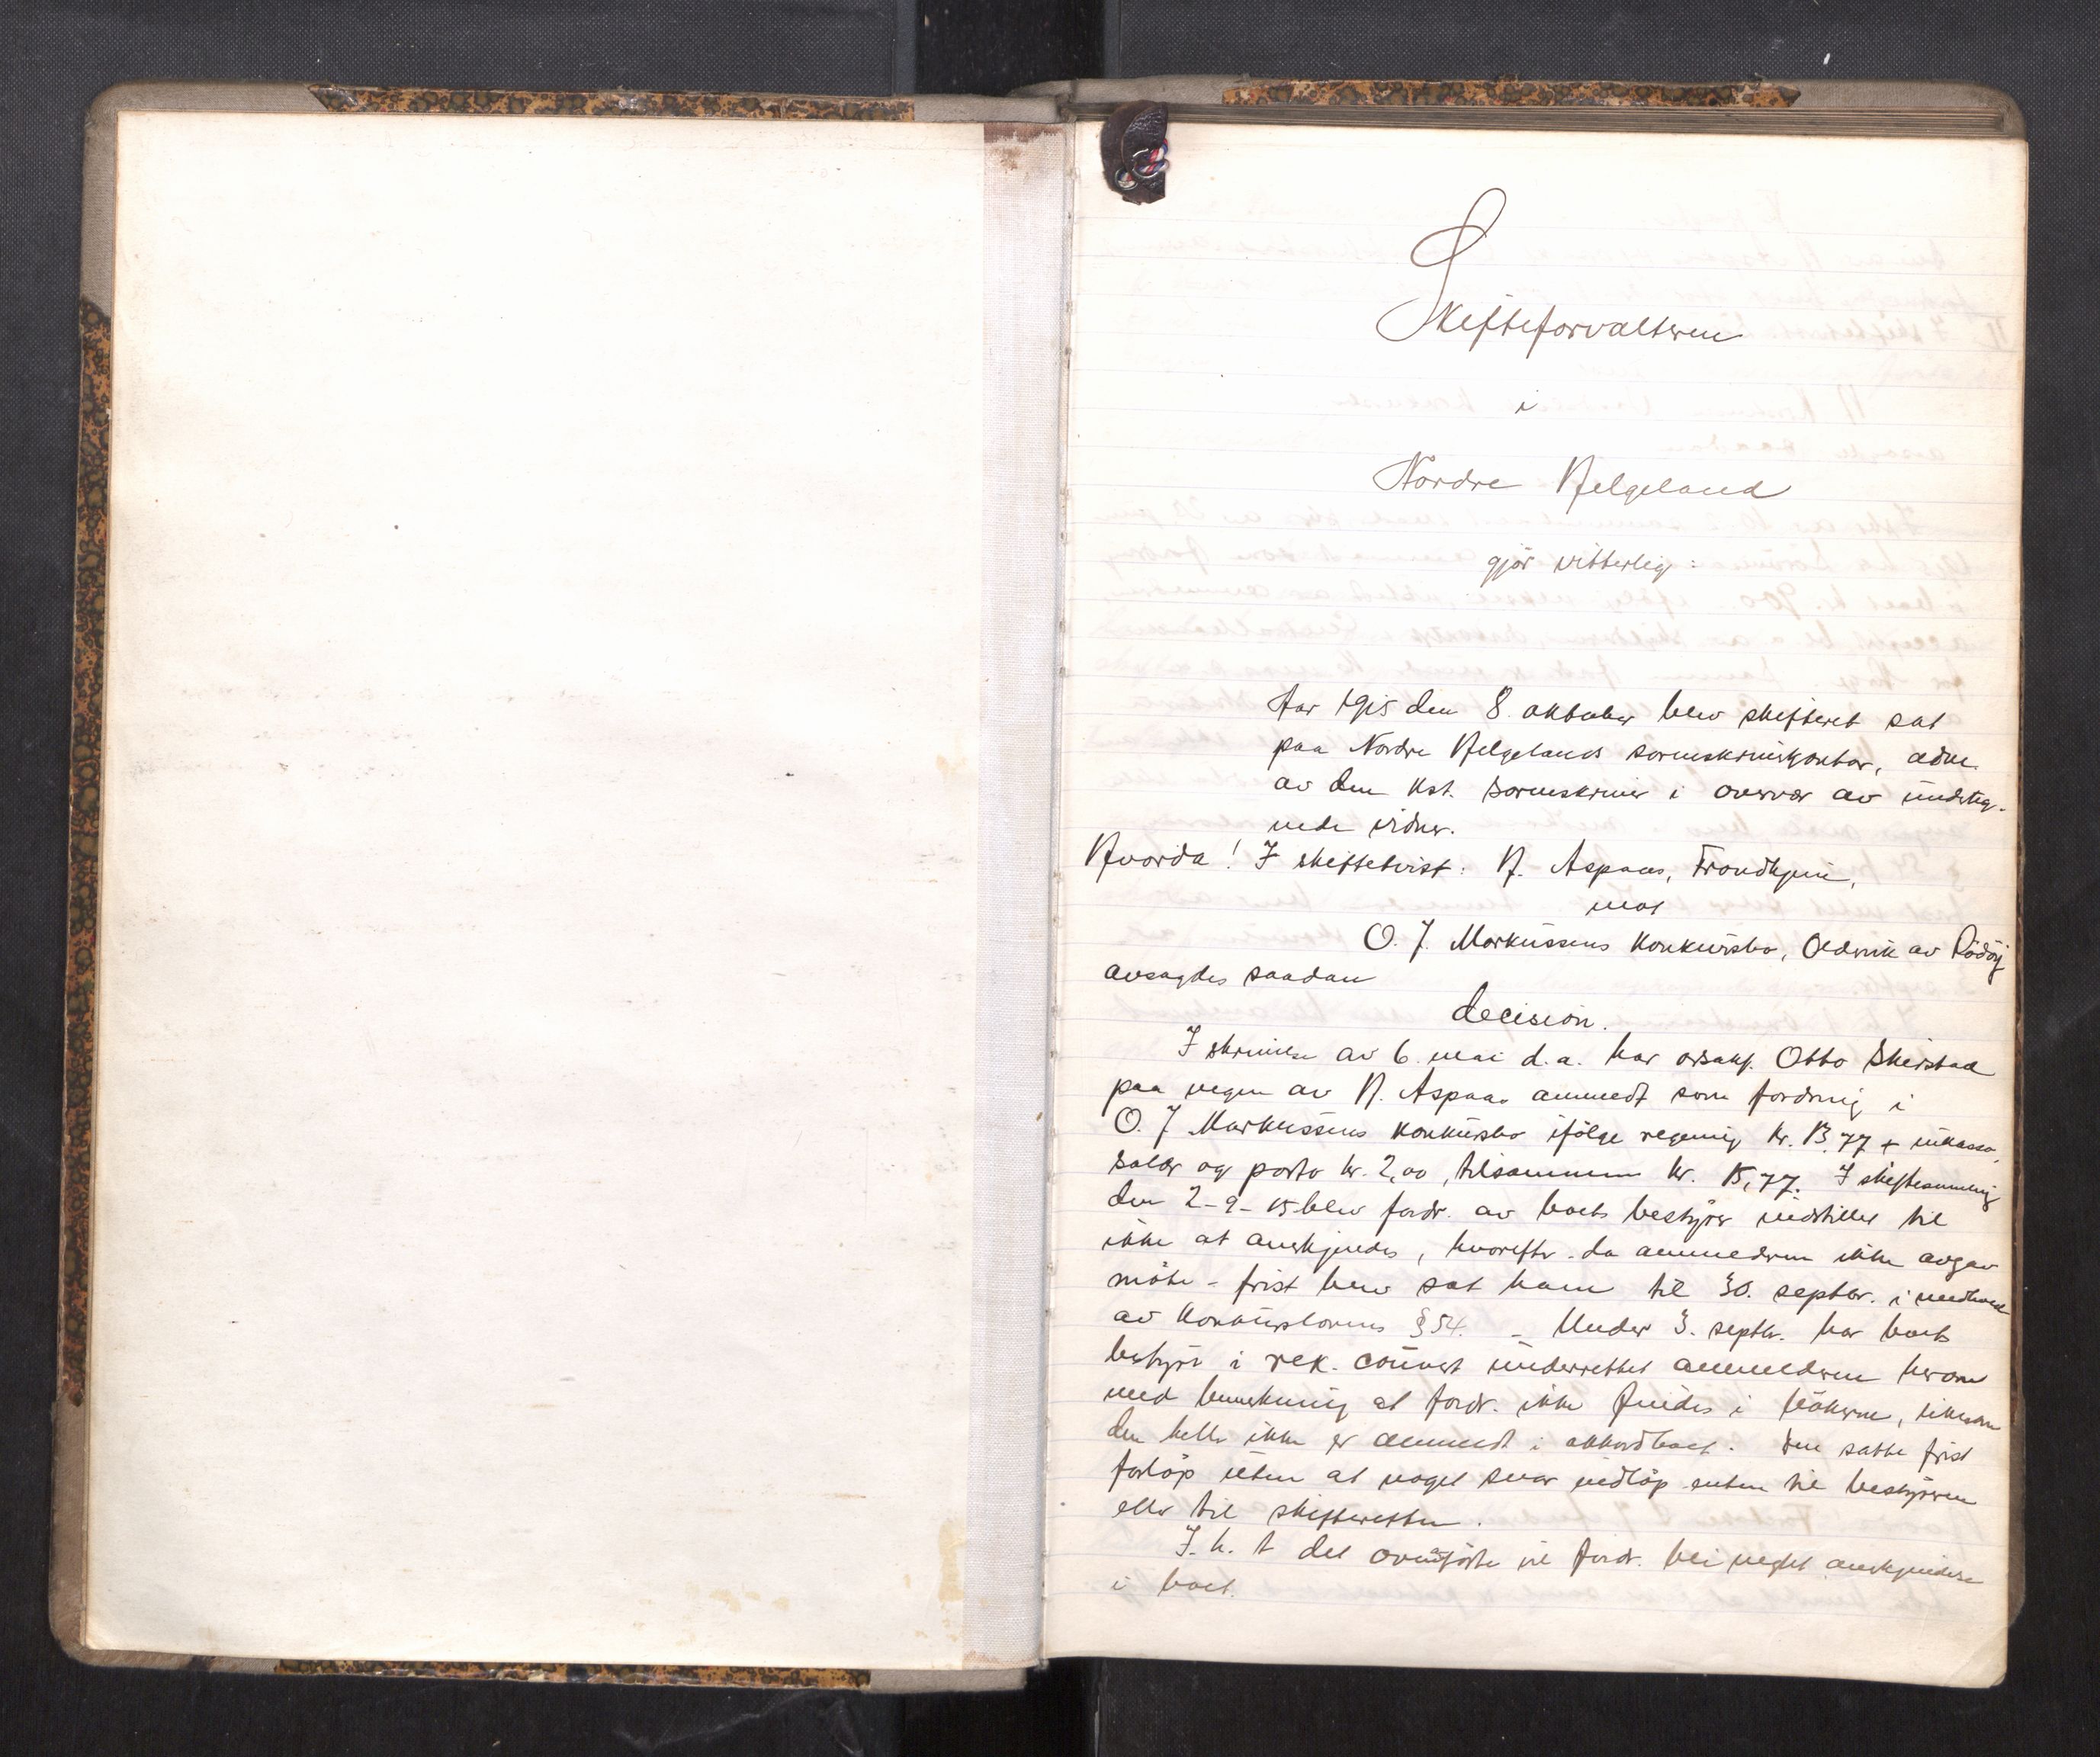 Skifteforvalteren
i
Nordre Helgeland
gjör vitterlig:
Aar 1915 den 8. oktober blev skifteret sat
paa Nordre Helgelands sorenskriverkontor, adm.
av den kst. sorenskriver i overvær av underteg-
nede vidner.
Hvorda! I skiftetvist: H. Aspaas, Trondhjem,
mot
O. J. Markussens konkursbo, Oldervik av Rödöy
avsagdes saadan
decision.
I skrivelse av 6. mai d.a. har orsakf. Otto Skirstad
paa vegne av H. Aspaas anmeldt som fordring i
O. J. Markussens konkursbo ifölge regning kr. 13,77 + inkasso,
salær og porto kr. 2,00, tilsammen kr. 15,77. I skiftesamling
den 2-9-15 blev fordr. av boets bestyrer indstillet til
ikke at anerkjendes, hvorefter - da anmelderen ikke avgav
möte - frist blev sat ham til 30. septbr. i medhold
av konkurslovens § 54. - Under 3. septbr. har boets
bestyrer i rek. couvert underrettet anmelderen herom
med bemerkning at fordr. ikke findes i bökerne, likesom
den heller ikke er anmeldt i akkordboet. Den satte frist
forlöp uten at noget svar indlöp enten til bestyreren
eller til skifteretten.
I. h. t det ovenförte vil fordr. bli negtet anerkjendelse
i boet.